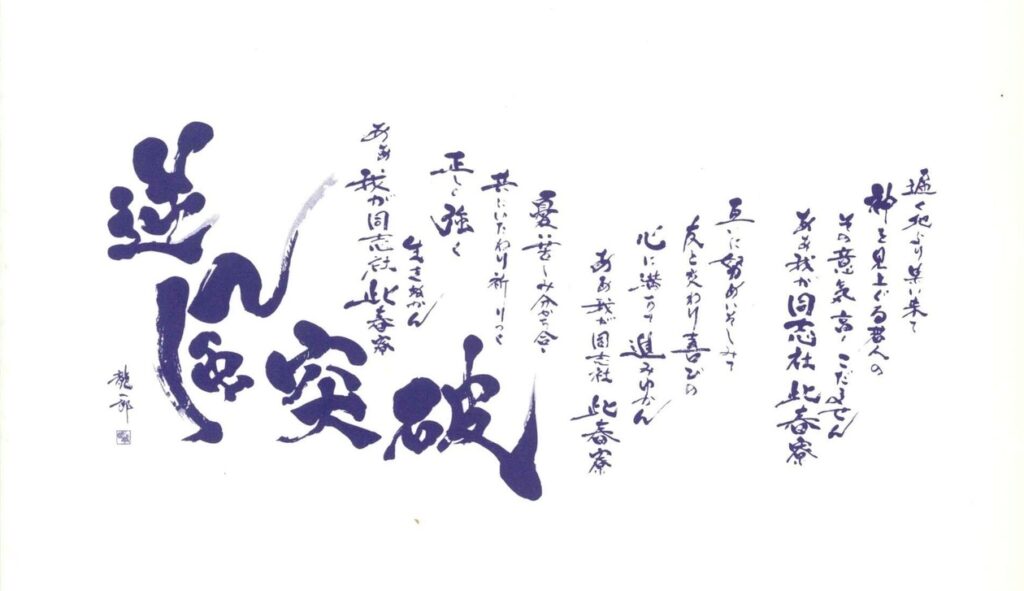 遥く地より集い来て
神を見上ぐる若人の
その意気高くこだません
ああ我が同志社 此春寮
互いに努めいそしみて
友と交わり喜びの
心に満ちて進みゆかん
ああ我が同志社 此春寮
憂い苦しみ分かち合い
共にいたわり祈りつつ
正しく強く
生きぬかん
ああ我が同志社 此春寮
逆風突破
龍一郎